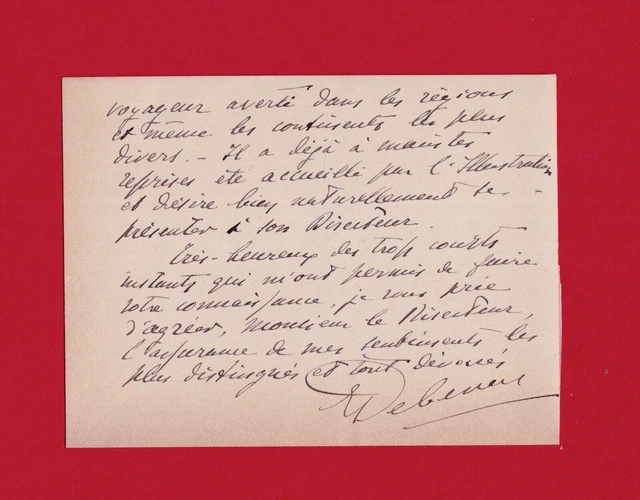 voyageur averti dans les régions
et même les continents les plus
divers. – Il a déjà à maintes
reprises été accueilli par l'Illustration
et désire bien naturellement se
présenter à son Directeur.
Très-heureux des trop courts
instants qui m'ont permis de faire
votre connaissance, je vous prie
d'agréer, Monsieur le Directeur,
l'assurance de mes sentiments les
plus distingués et tout dévoués
Debeney